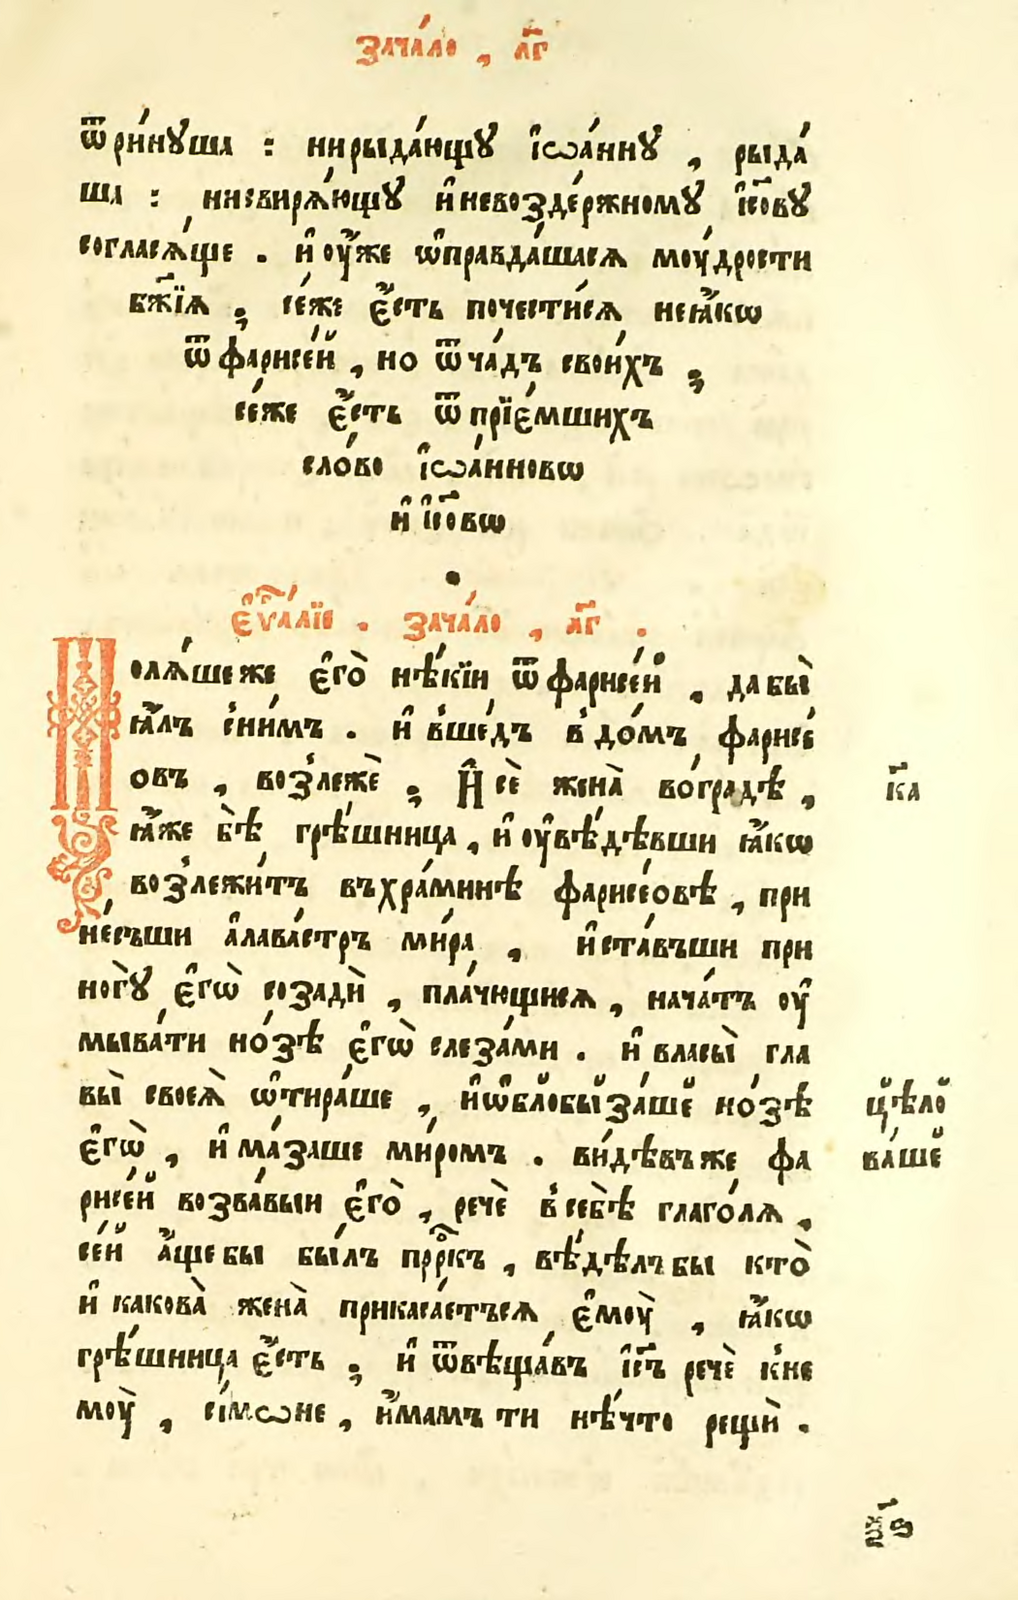 зача́ло , л҃г
ѿри́нꙋша : нирыда́ющꙋ і҆ѡа́ннꙋ , рыда́
ша : нисвирѧ́ющꙋ и҆невоздержномꙋ̀ і҆со҃вꙋ
согласѧ́ще . и҆ оу҆́же ѡ҆правда́шасѧ моу́дрости
бж҃їѧ , се́же є҆́сть почести́сѧ неꙗ҆́кѡ
ѿ фарисе́й , но ѿ ча́дъ свои́хъ ,
се́же є҆́сть ѿ прїе́мшихъ
сло́во і҆ѡа́нновѡ
и҆ і҆со҃вѡ
є҆ѵⷢ҇лїе . зача́ло , л҃г .
Молѧ́шеже є҆го̀ нѣ́кїи ѿ фарисе́й , дабы̀
ꙗ҆́лъ сни́мъ . и҆ вше́дъ в до́мъ фарисе́
овъ , возлежѐ , И҆ сѐ жена̀ во гра́дѣ ,
к҃а
ꙗ҆́же бѣ̀ грѣ́шница , и҆ оу҆вѣ́дѣвши ꙗ҆́кѡ
возлежи́тъ въхра́минѣ фарисе́овѣ , при
не́съши а҆лава́стръ ми́ра , и҆ста́въши при
ногꙋ̀ є҆гѡ̀ созадѝ , пла́чющисѧ , нача́тъ оу҆
мыва́ти но́зѣ є҆гѡ̀ слеза́ми . и҆ власы̀ гла
вы̀ своеѧ̀ ѡ҆тира́ше , и҆ѡ҆блобыза́ше но́зѣ
цѣ́ло
є҆гѡ̀ , и҆ ма́заше ми́ромъ . ви́дѣвъже фа
ва́ше
рисе́й возва́выи є҆го̀ , речѐ в себѣ̀ глаго́лѧ ,
се́й а҆́щебы бы́лъ прⷪ҇ркъ , вѣ́дѣлъбы кто̀
и҆ какова̀ жена̀ прикаса́етъсѧ є҆моу̀ , ꙗ҆́кѡ
грѣ́шница є҆́сть , и҆ ѿвѣща́въ і҆с҃ъ речѐ к не
моу̀ , сі́мѡне , и҆́мамъ ти нѣ́что рещѝ .